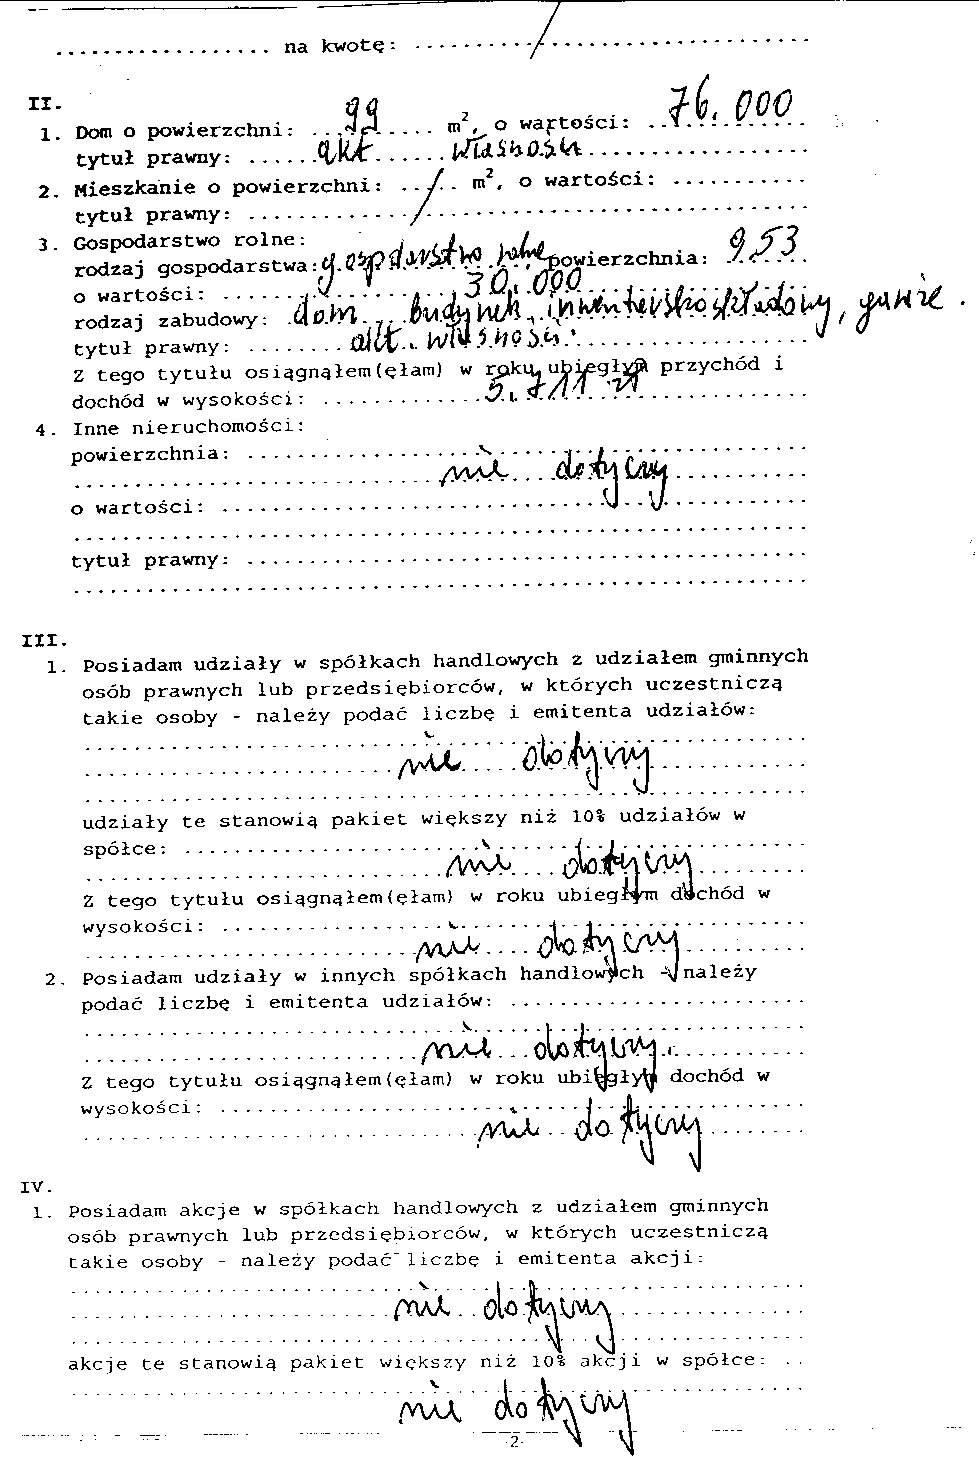 .................. na kwotę: ........../......................
II.
1. Dom o powierzchni: ...99.... m², o wartości: ..76.000..
tytuł prawny: ......akt......własności..................
2. Mieszkanie o powierzchni: ../.. m², o wartości: ...........
tytuł prawny: ............../................................
3. Gospodarstwo rolne:
rodzaj gospodarstwa: gospodarstwo rolne powierzchnia: 9,53
o wartości: ....................30.000...................
rodzaj zabudowy: dom, budynek inwentarsko składowy, garaże.
tytuł prawny: ........akt. własności....................
Z tego tytułu osiągnąłem(ęłam) w roku ubiegłym przychód i
dochód w wysokości: .............5.711 zł..............
4. Inne nieruchomości:
powierzchnia: ..............................................
..............................nie....dotyczy............
o wartości: ................................................
............................................................
tytuł prawny: ..............................................
............................................................
III.
1. Posiadam udziały w spółkach handlowych z udziałem gminnych
osób prawnych lub przedsiębiorców, w których uczestniczą
takie osoby - należy podać liczbę i emitenta udziałów:
............................................................
..........................nie.....dotyczy.............
............................................................
udziały te stanowią pakiet większy niż 10% udziałów w
spółce: ....................................................
..............................nie....dotyczy.........
Z tego tytułu osiągnąłem(ęłam) w roku ubiegłym dochód w
wysokości: .................................................
...........................nie....dotyczy..........
2. Posiadam udziały w innych spółkach handlowych - należy
podać liczbę i emitenta udziałów: ........................
............................................................
...........................nie...dotyczy............
Z tego tytułu osiągnąłem(ęłam) w roku ubiegłym dochód w
wysokości: .................................................
................................nie..dotyczy........
IV.
1. Posiadam akcje w spółkach handlowych z udziałem gminnych
osób prawnych lub przedsiębiorców, w których uczestniczą
takie osoby - należy podać liczbę i emitenta akcji:
............................................................
..........................nie..dotyczy...............
............................................................
akcje te stanowią pakiet większy niż 10% akcji w spółce: ..
..........................nie dotyczy...............
-2-